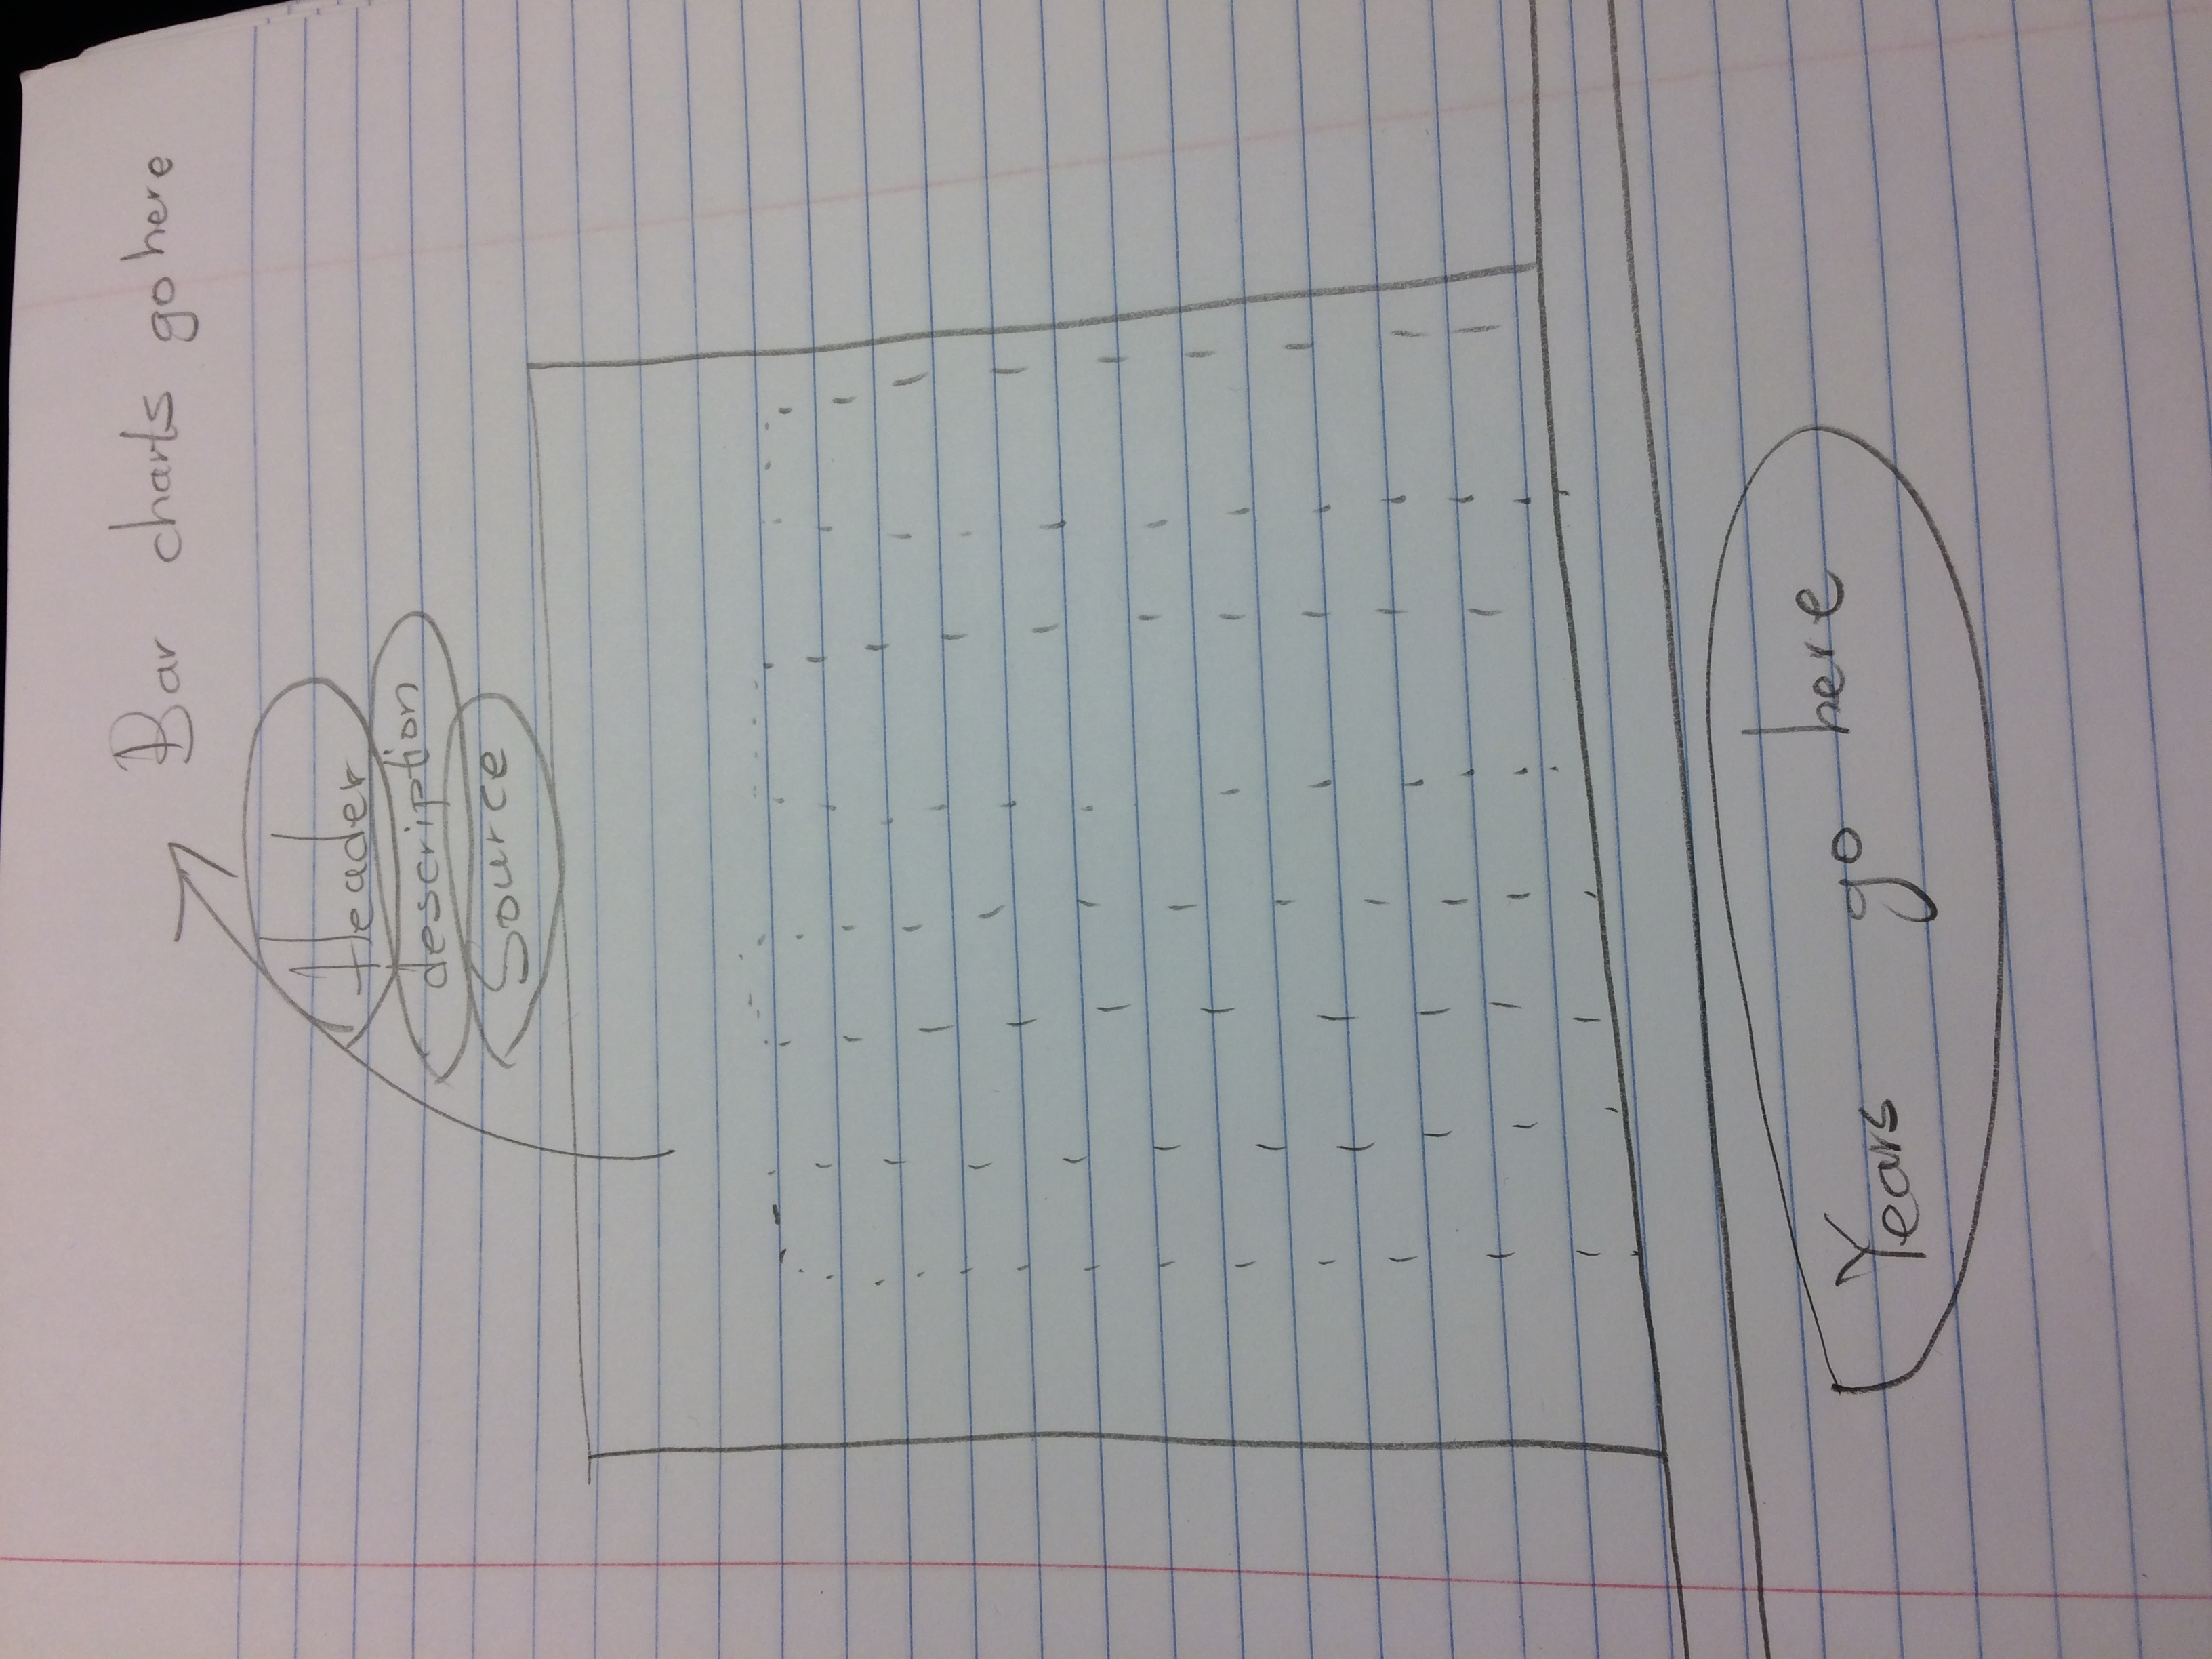 Bar charts go here
Header
description
Source
Years go here